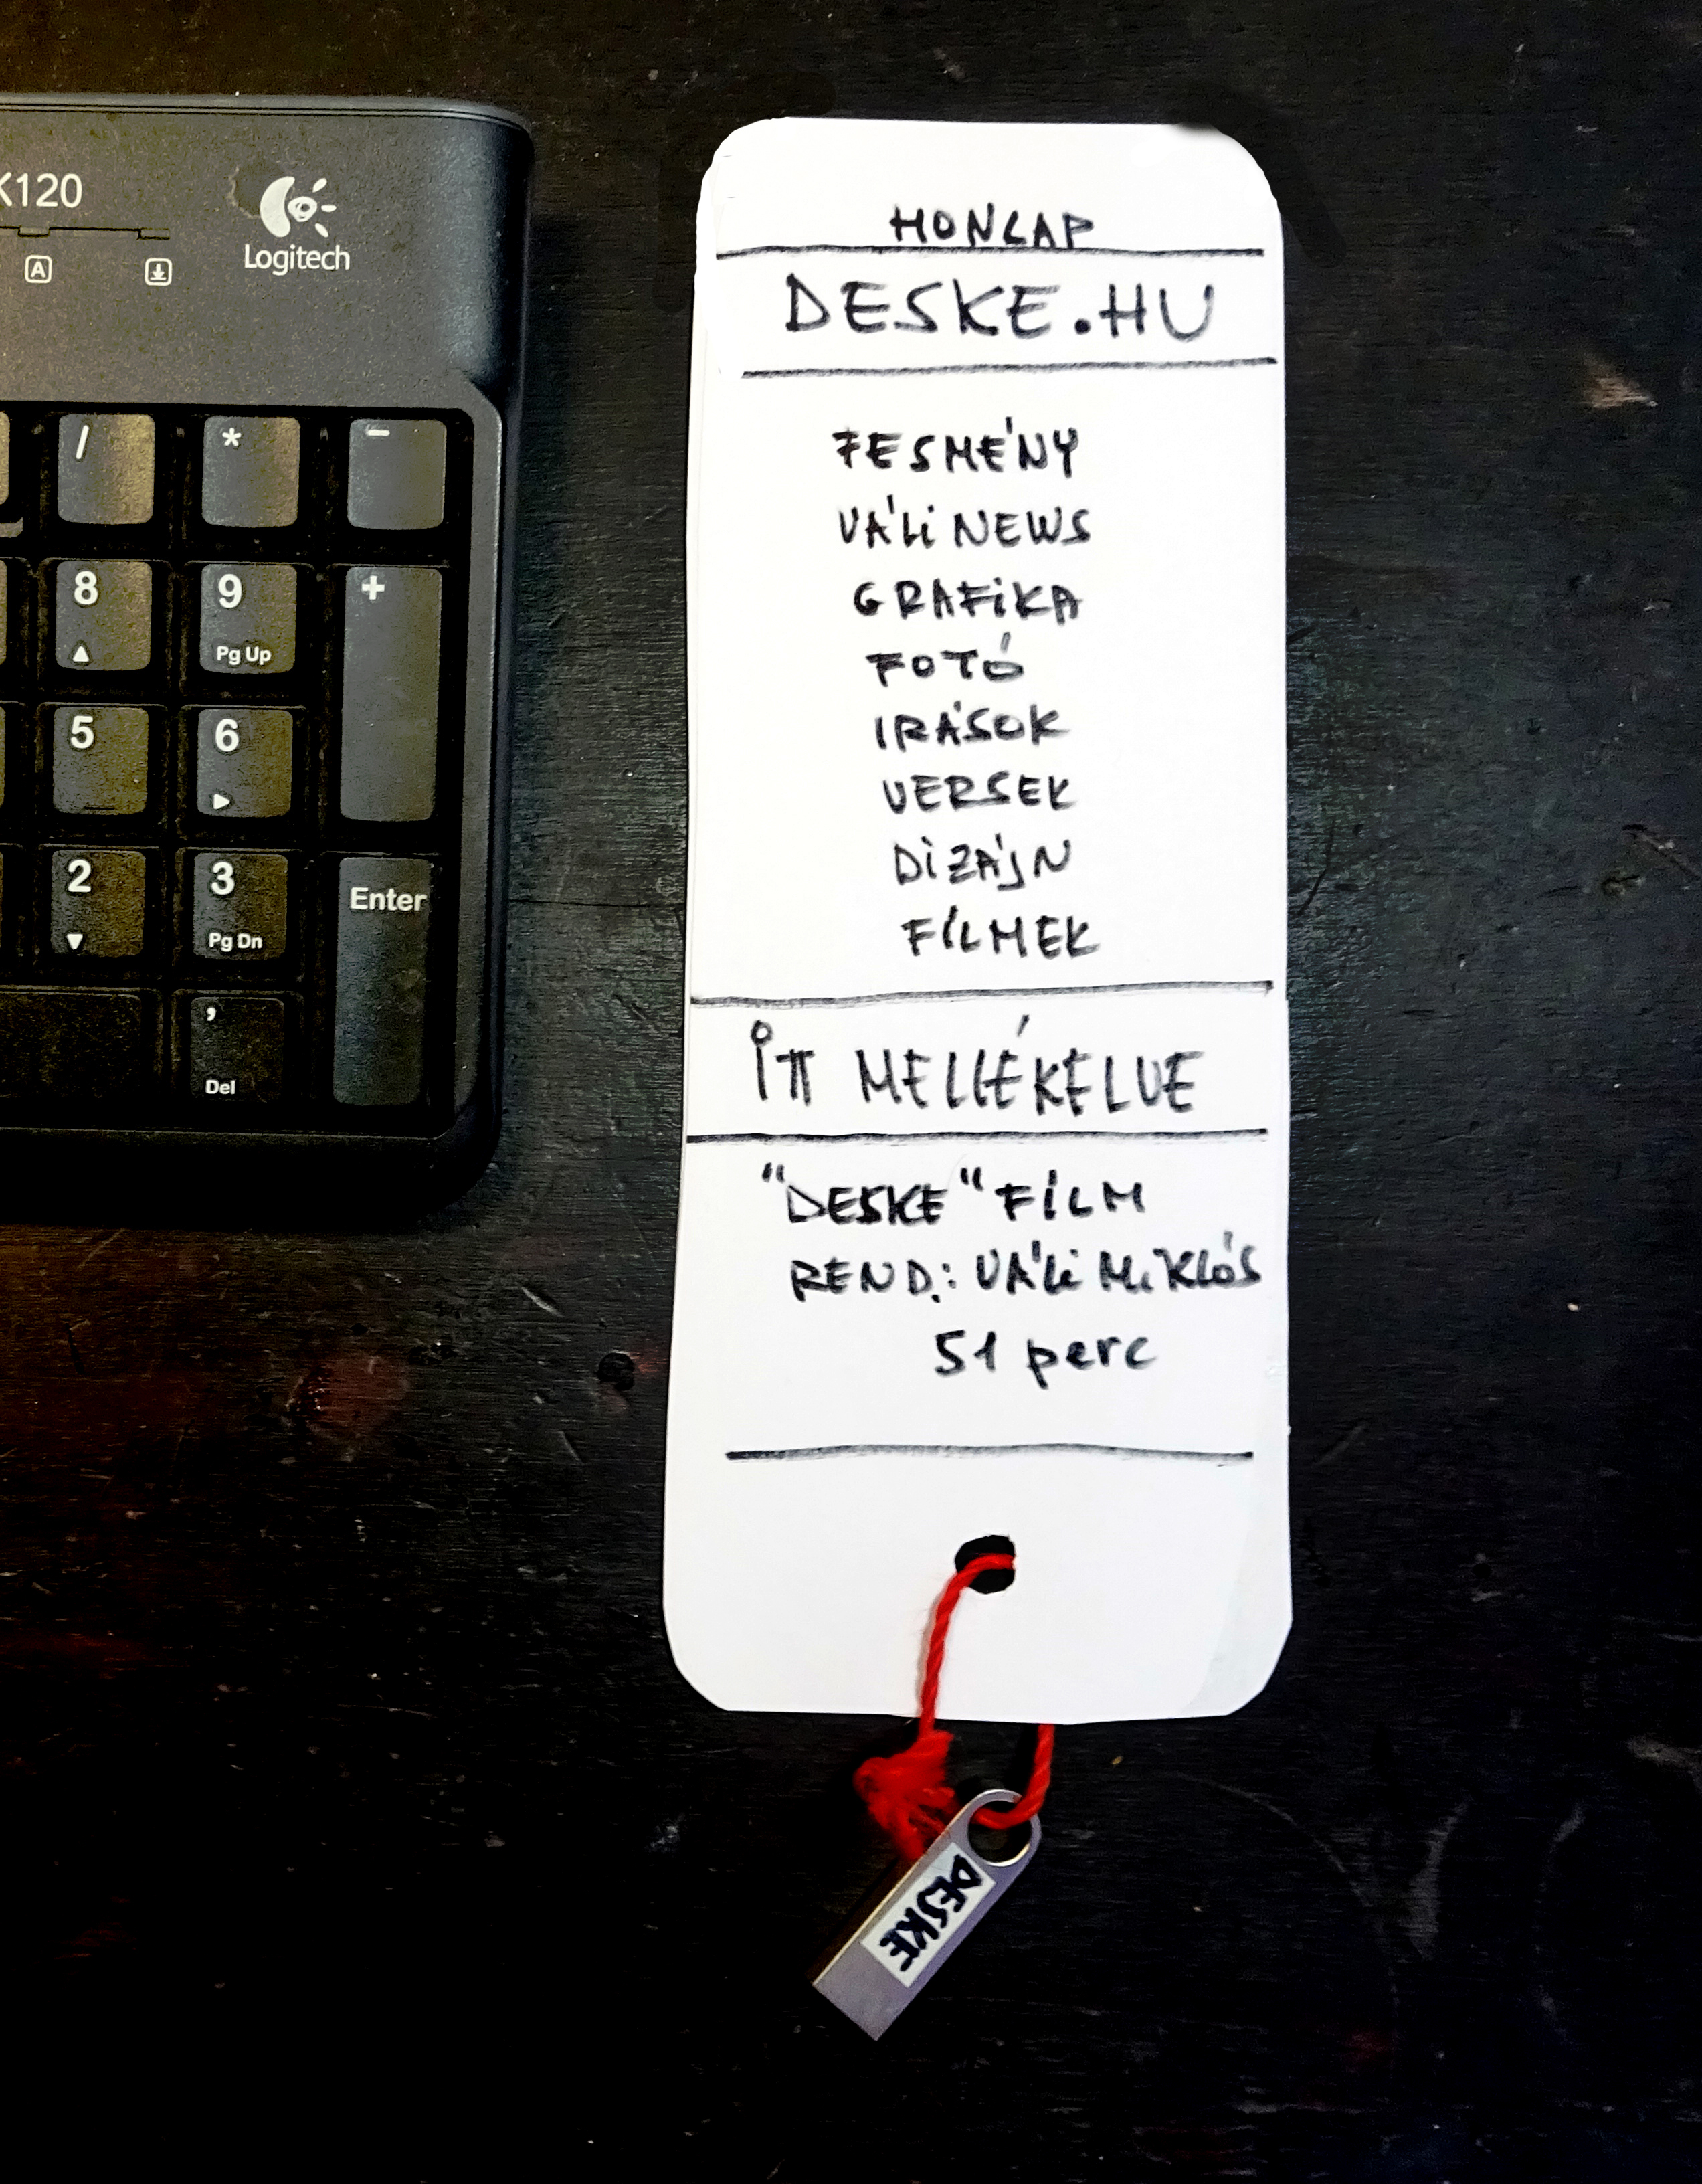 K120
Logitech
A
/
*
-
8
9
+
Pg Up
5
6
2
3
Enter
Pg Dn
,
Del
HONLAP
DESKE.HU
FESMÉNY
VÁLI NEWS
GRAFIKA
FOTÓ
IRÁSOK
VERSEK
DIZÁJN
FILMEK
ITT MELLÉKELVE
"DESKE" FILM
REND.: VÁLI MIKLÓS
51 perc
DESKE